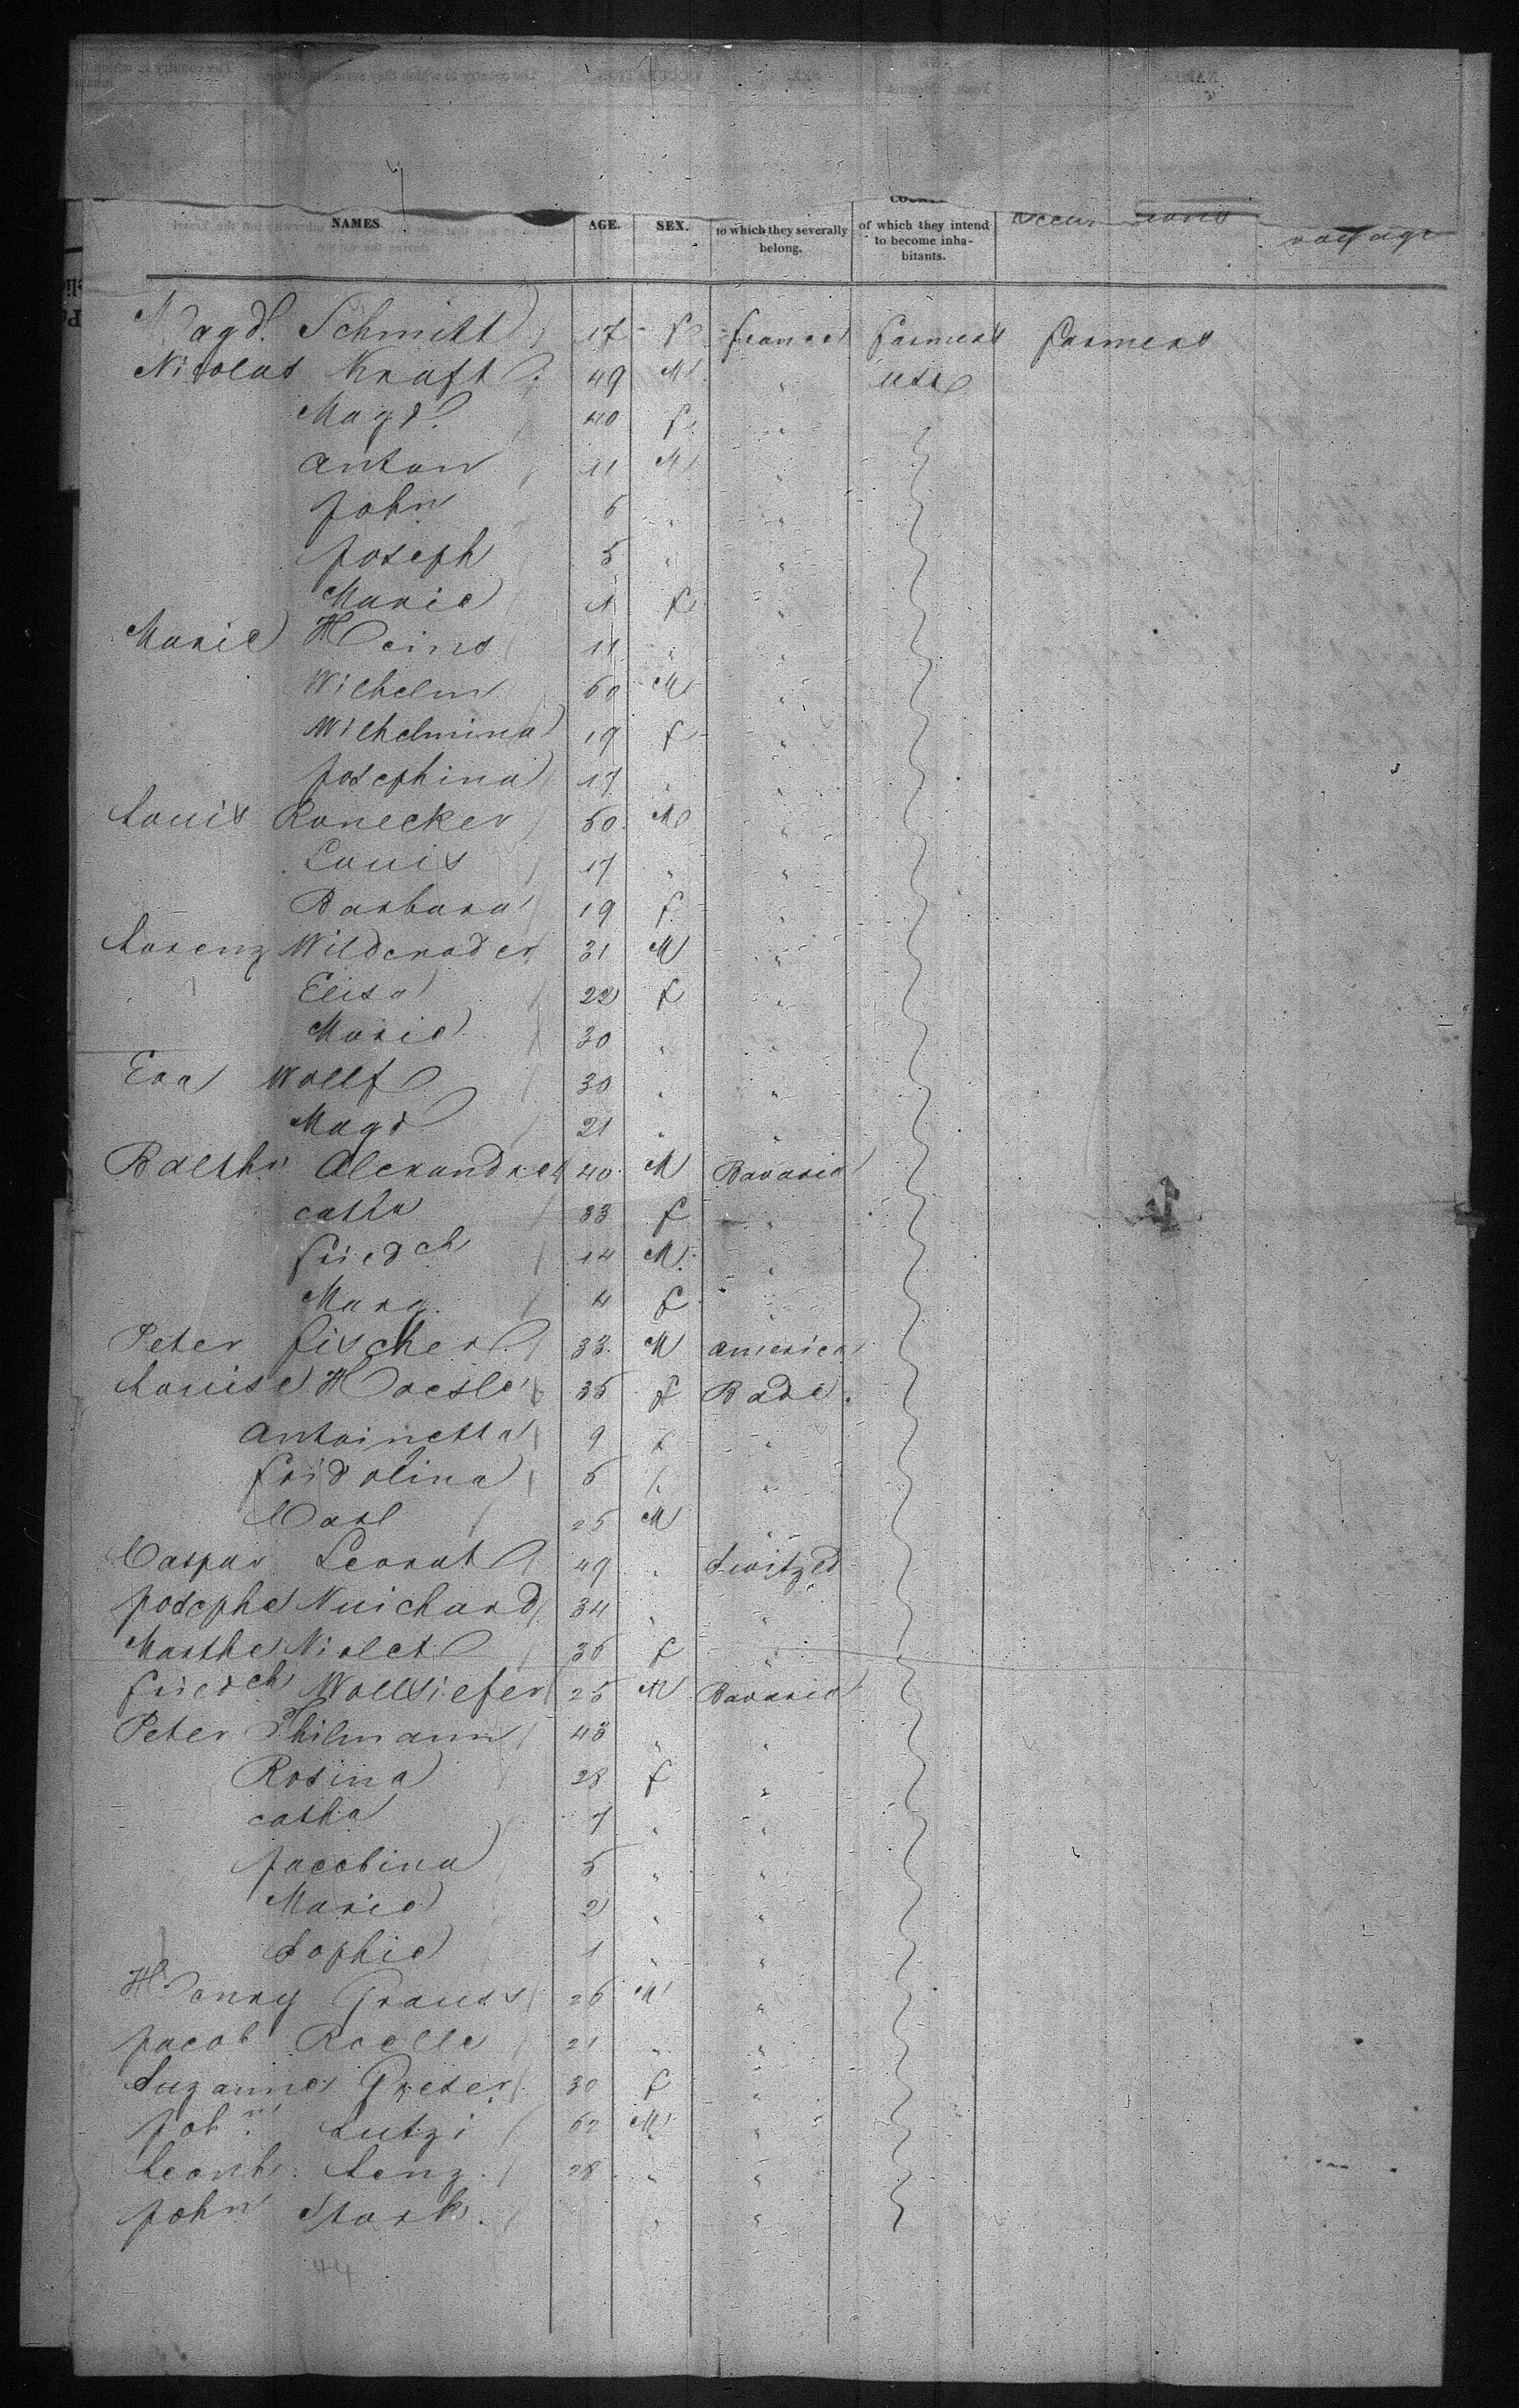 NAMES AGE. SEX. to which they severally belong. of which they intend to become inhabitants. voyage
Magd. Schmitt 17 f france farmers farmers
Nicolas Kraft 49 M " USA
Magd. 40 f "
Anton 11 M "
John 6 " "
Joseph 5 " "
Marie 1 f "
Marie Heins 11 " "
Wilhelm 60 M "
Wilhelmina 19 f "
Josephina 17 " "
Louis Ronecker 50 M "
Louis 17 " "
Barbara 19 f "
Lorenz Wildenroder 31 M "
Elisa 22 f "
Marie 30 " "
Eva Wollf 30 " "
Magd 21 " "
Balth. Alexandre 40 M Bavaria
catha 33 f "
friedch 14 M "
Marg. 4 f "
Peter fischer 33 M america
Louise Hoesle 35 f Bade.
Antoinetta 9 f "
fridolina 5 f "
Carl 25 M
Caspar Leonat 49 " Switzed
Josephe Nuichard 34 " "
Marthe Niolet 36 f "
friedch Wollsiefer 25 M Bavaria
Peter Thilmann 43 " "
Rosina 28 f "
catha 7 " "
Jacobina 5 " "
Marie 2 " "
Sophie 1 " "
Hanry Grauss 26 M "
Jacob Roelle 21 " "
Suzanne Greter 30 f "
Joh. Lutzi 62 M "
Leonh. Lenz 28 " "
John Stark. " "
44